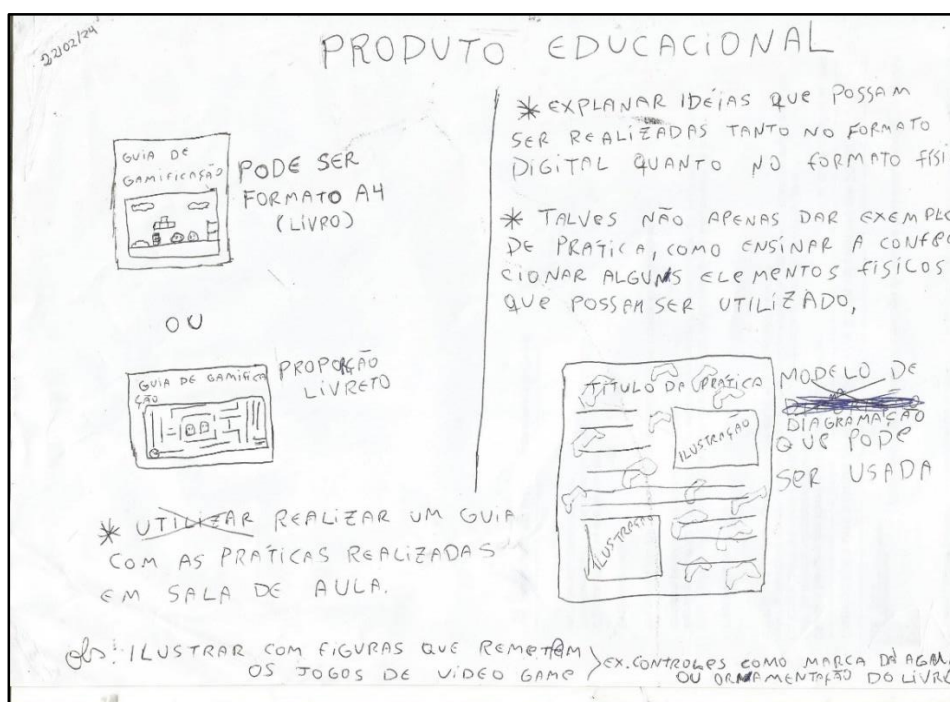 22/02/24
PRODUTO EDUCACIONAL
GUIA DE
GAMIFICAÇÃO
PODE SER
FORMATO A4
(LIVRO)
OU
GUIA DE GAMIFICA
ÇÃO
PROPORÇÃO
LIVRETO
* UTILIZAR REALIZAR UM GUIA
COM AS PRATICAS REALIZADAS
EM SALA DE AULA.
* EXPLANAR IDÉIAS QUE POSSAM
SER REALIZADAS TANTO NO FORMATO
DIGITAL QUANTO NO FORMATO FÍSI
* TALVES NÃO APENAS DAR EXEMPLO
DE PRATICA, COMO ENSINAR A CONFEC
CIONAR ALGUNS ELEMENTOS FISICOS
QUE POSSAM SER UTILIZADO,
TITULO DA PRATICA
ILUSTRAÇÃO
ILUSTRAÇÃO
MODELO DE
DIAGRAMAÇÃO
QUE PODE
SER USADA
obs: ILUSTRAR COM FIGURAS QUE REMETAM
OS JOGOS DE VIDEO GAME
EX. CONTROLES COMO MARCA DÁGUA
OU ORNAMENTAÇÃO DO LIVRO